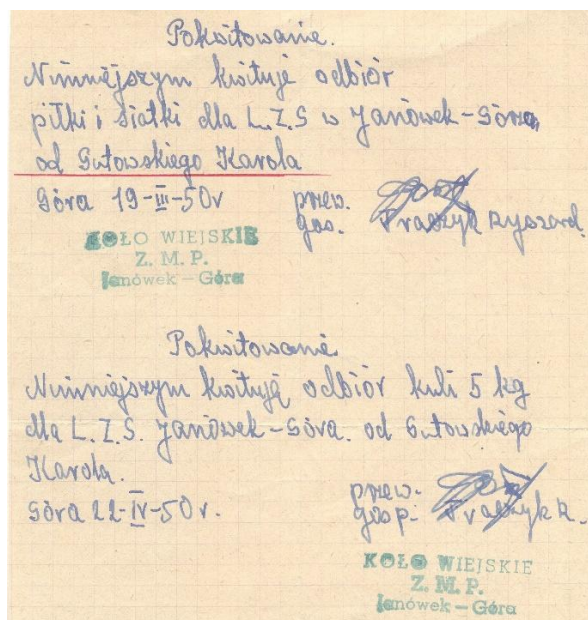 Pokwitowanie.
Nininiejszym kwituje odbiór
piłki i siatki dla L.Z.S w Janówek-Góra
od Gutowskiego Karola
Góra 19-III-50r
przew.
gos. Praszyk Ryszard
KOŁO WIEJSKIE
Z. M. P.
Janówek – Góra
Pokwitowanie
Nininiejszym kwituję odbiór kuli 5 kg
dla L.Z.S. Janówek-Góra. od Gutowskiego
Karola.
Góra 22-IV-50r.
przew.
gosp. Praszyk R.
KOŁO WIEJSKIE
Z. M. P.
Janówek – Góra